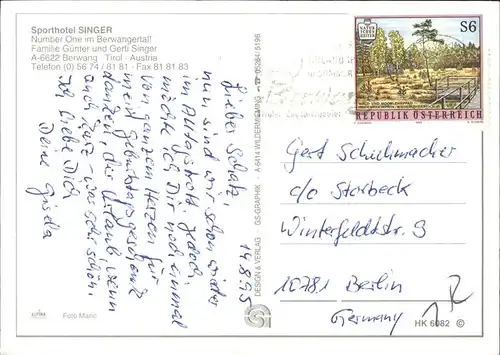 Sporthotel SINGER
Number One im Berwangertal!
Familie Günter und Gerti Singer
A-6622 Berwang · Tirol · Austria
Telefon (0) 56 74 / 81 81 - Fax 81 81 83
14.8.95
Lieber Schatz,
nun sind wir schon wieder
im Alltagstrott. Jedoch
möchte ich Dir noch einmal
von ganzem Herzen für
mein Geburtstagsgeschenk
danken, der Urlaub, wenn
auch kurz - war sehr schön.
Ich liebe Dich
Deine Gisela
ALPINA
Foto Mario
DESIGN & VERLAG · GS-GRAPHIK · A 6414 WILDERMIEMING · 05264/5196
NATUR
SCHÖN
S6
REPUBLIK ÖSTERREICH
Gert Schuhmacher
c/o Storbeck
Winterfeldtstr. 9
10781 Berlin
Germany
HK 6082